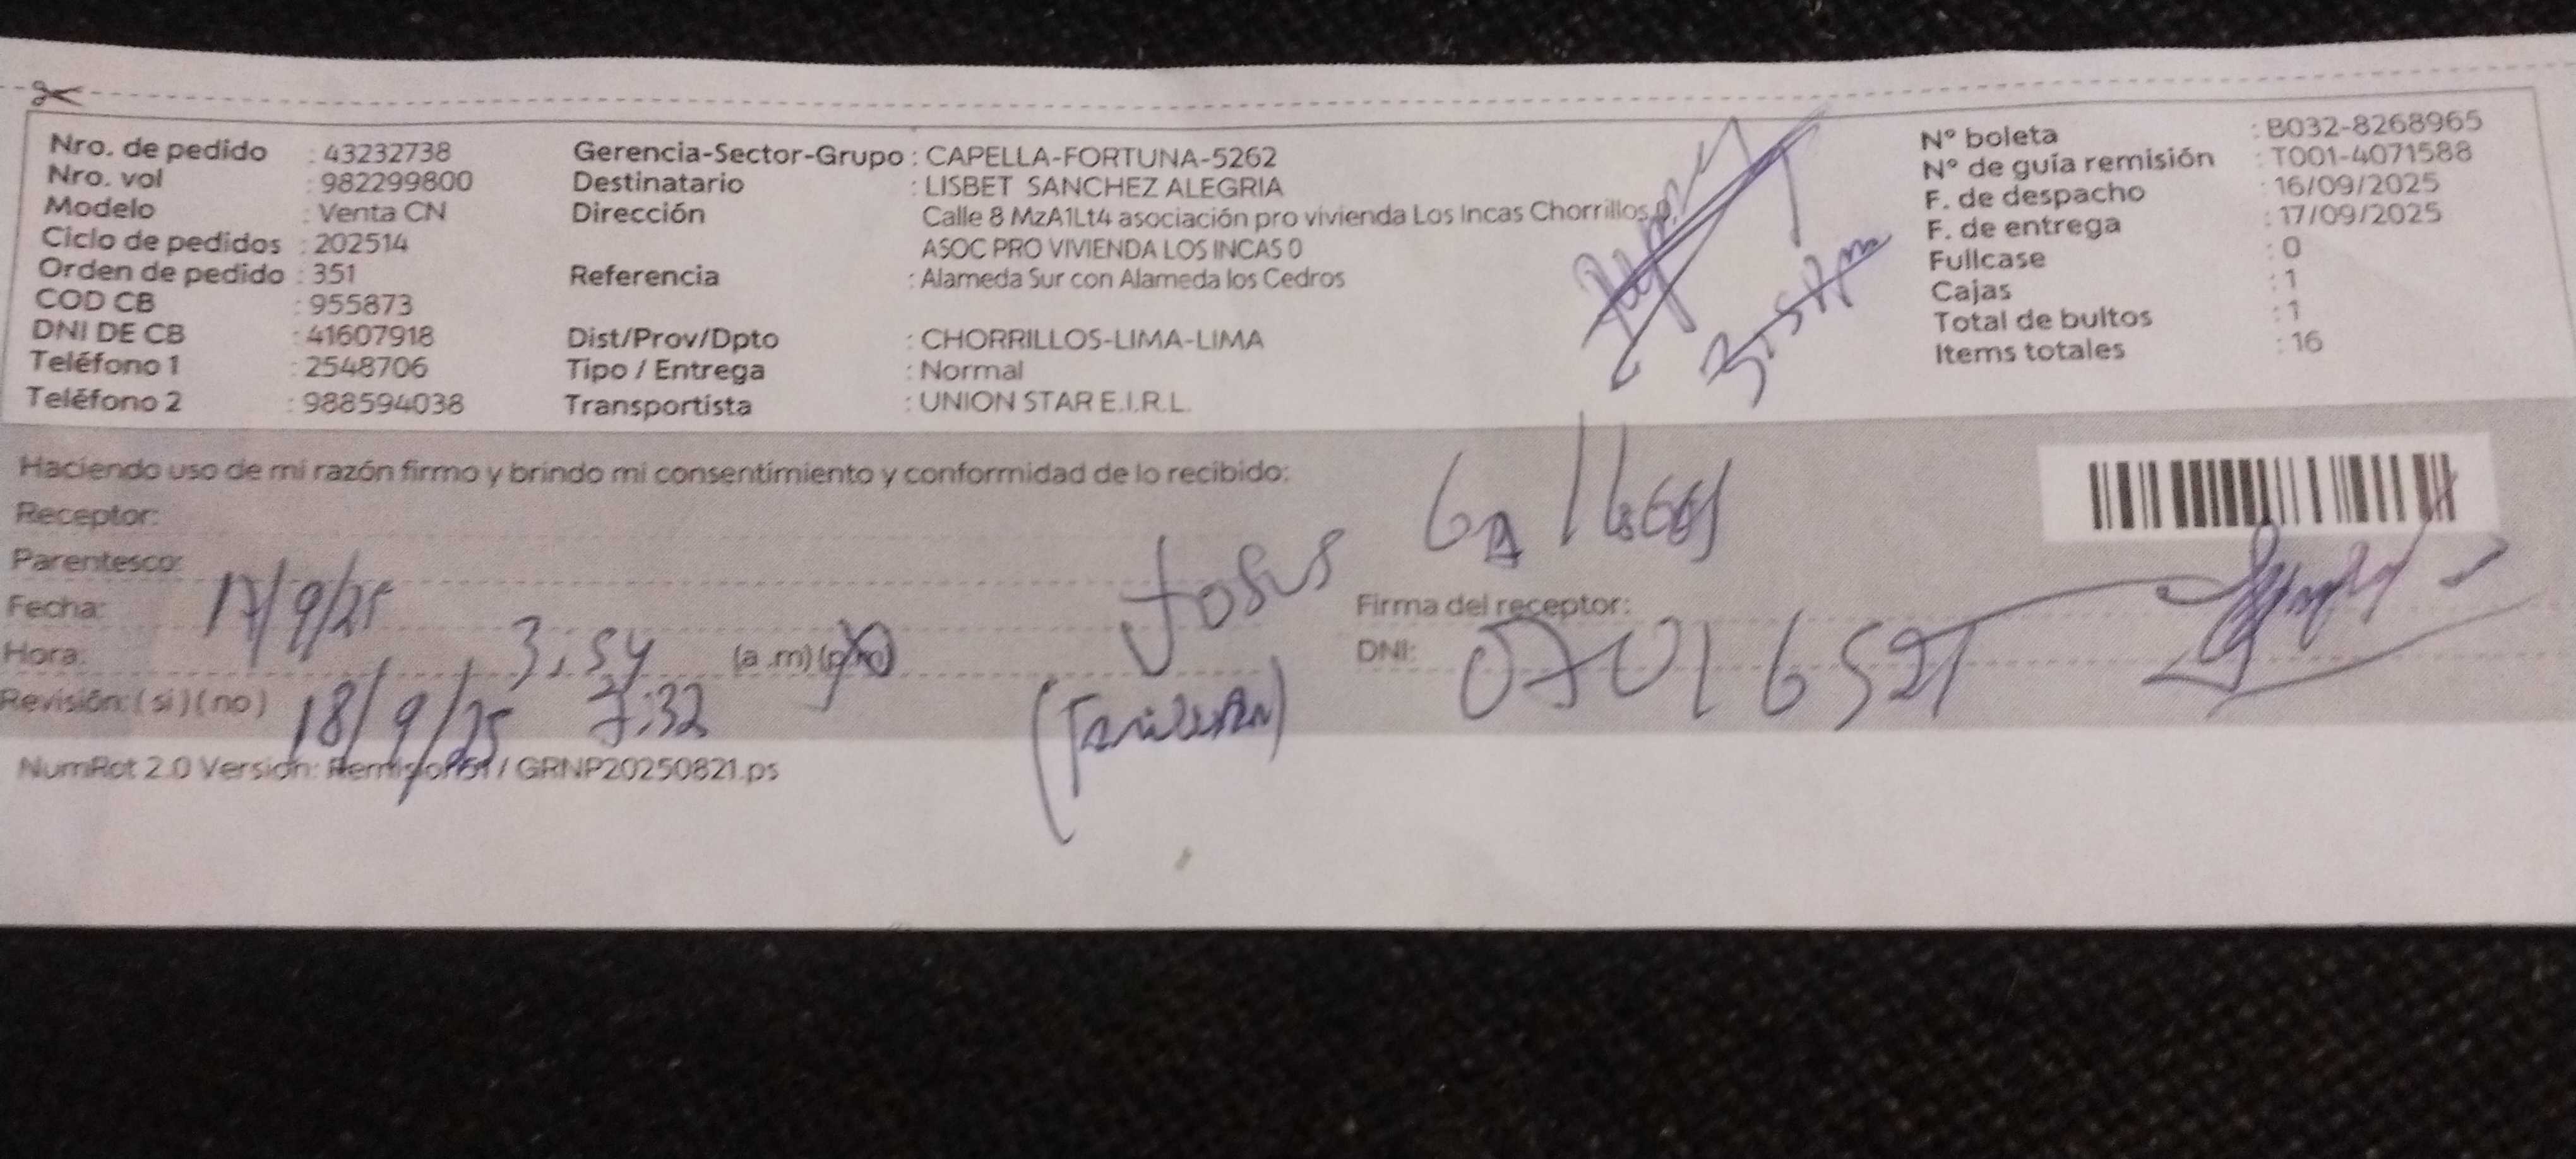 Nro. de pedido : 43232738
Nro. vol : 982299800
Modelo : Venta CN
Ciclo de pedidos : 202514
Orden de pedido : 351
COD CB : 955873
DNI DE CB : 41607918
Teléfono 1 : 2548706
Teléfono 2 : 988594038
Gerencia-Sector-Grupo : CAPELLA-FORTUNA-5262
Destinatario : LISBET SANCHEZ ALEGRIA
Dirección Calle 8 MzA1Lt4 asociación pro vivienda Los Incas Chorrillos
ASOC PRO VIVIENDA LOS INCAS 0
Referencia : Alameda Sur con Alameda los Cedros
Dist/Prov/Dpto : CHORRILLOS-LIMA-LIMA
Tipo / Entrega : Normal
Transportista : UNION STAR E.I.R.L.
N° boleta : B032-8268965
N° de guía remisión : T001-4071588
F. de despacho : 16/09/2025
F. de entrega : 17/09/2025
Fullcase : 0
Cajas : 1
Total de bultos : 1
Items totales : 16
Haciendo uso de mi razón firmo y brindo mi consentimiento y conformidad de lo recibido:
Receptor:
Parentesco:
Fecha: 17/9/25
Hora: 3:54 (a .m) (p.m)
Revisión: ( si ) ( no ) 18/9/25 7:32
Firma del receptor:
DNI:
NumRot 2.0 Version: Remision51 / GRNP20250821.ps